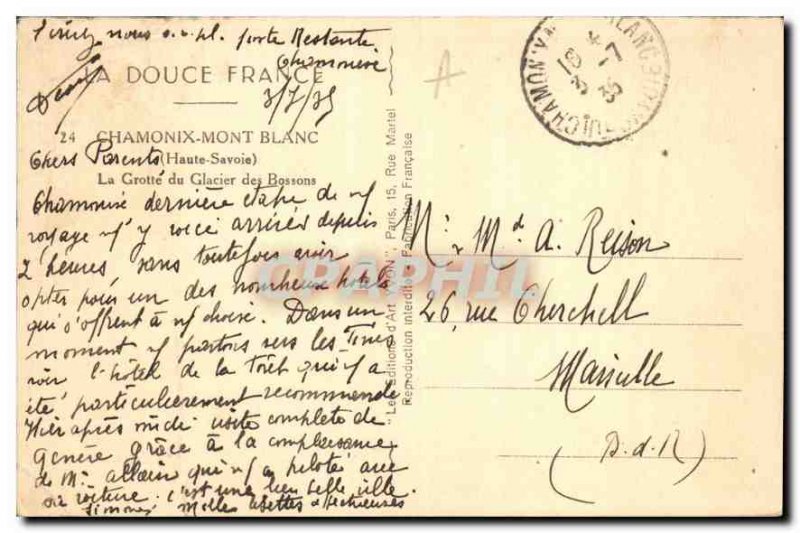 nous s.v.pl. poste Restante
Chamonix
LA DOUCE FRANCE
3/7/35
24 CHAMONIX-MONT BLANC
Chers Parents (Haute-Savoie)
La Grotte du Glacier des Bossons
Chamonix dernière étape de n/
voyage n/ y voici arrivés depuis
2 heures sans toutefois avoir
opter pour un des nombreux hotels
qui s'offrent à n/ choix. Dans un
moment n/ partons vers les Tines
voir l'hôtel de la Forêt qui n/ a
été particulièrement recommandé
Hier après midi visite complète de
Genève grâce à la complaisance
de Mr allain qui n/ a piloté avec
sa voiture. c'est une bien belle ville.
Simone Milles affectueuses
"Les Editions d'Art YVON", Paris, 15, Rue Martel
Reproduction interdite Fabrication Française
CHAMONIX
35
A
Mr & Md A. Reison
26, rue Cherchell
Marseille
(B.d.R)
CPAPHIL